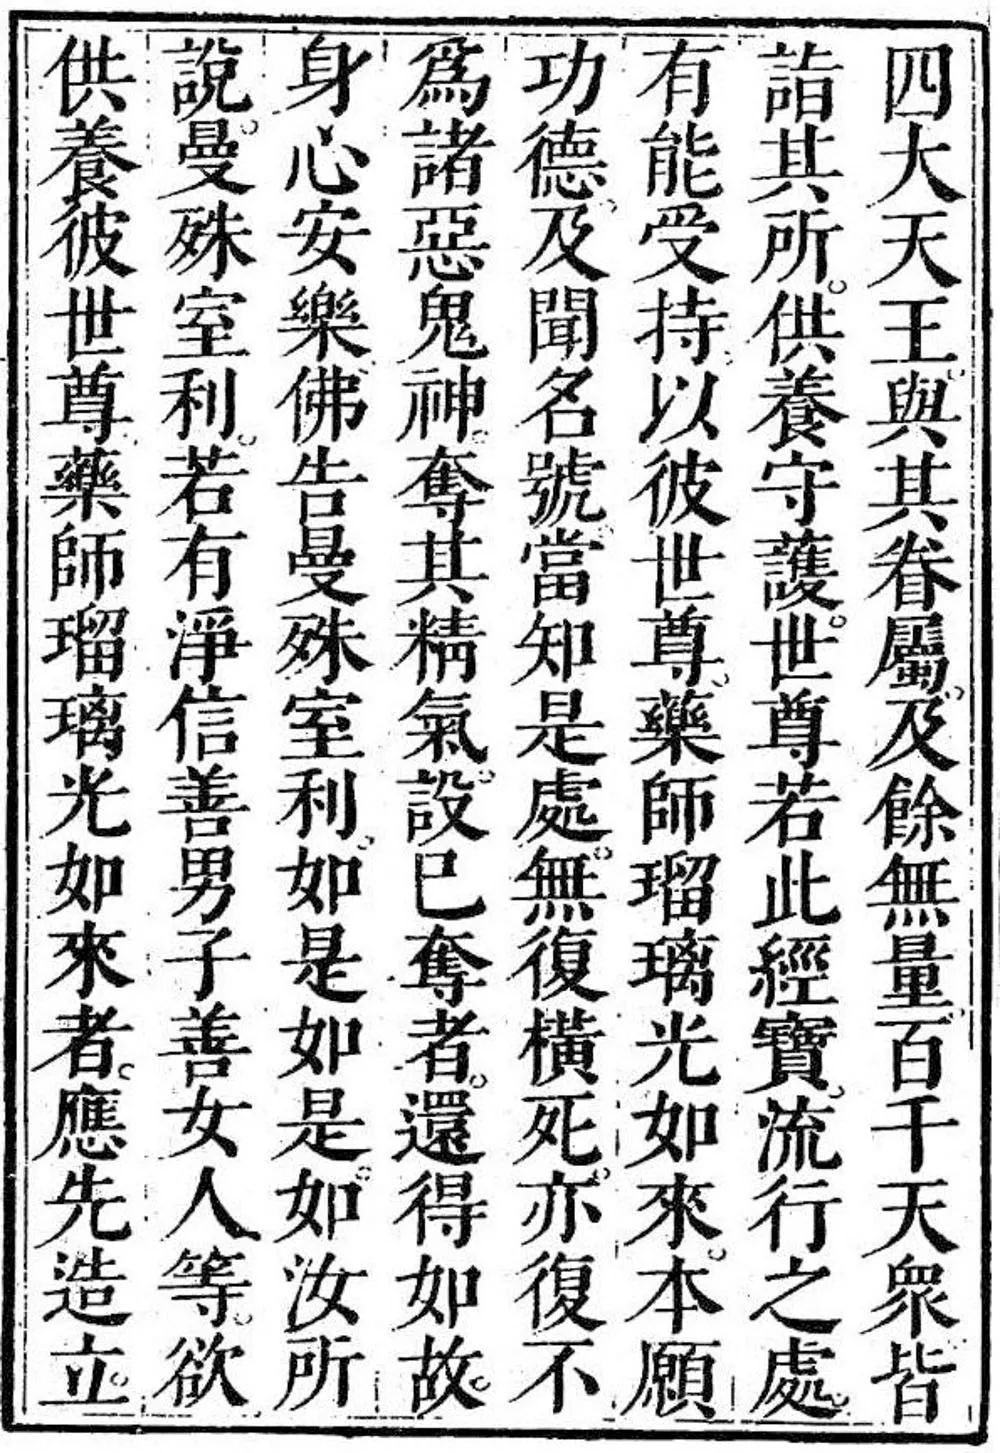 四大天王。與其眷屬。及餘無量百千天衆皆
詣其所。供養守護。世尊若此經寶。流行之處。
有能受持。以彼世尊。藥師瑠璃光如來。本願
功德。及聞名號。當知是處。無復橫死。亦復不
爲諸惡鬼神。奪其精氣。設已奪者。還得如故。
身心安樂。佛告曼殊室利。如是如是。如汝所
說。曼殊室利。若有淨信善男子善女人等。欲
供養彼世尊藥師瑠璃光如來者。應先造立。